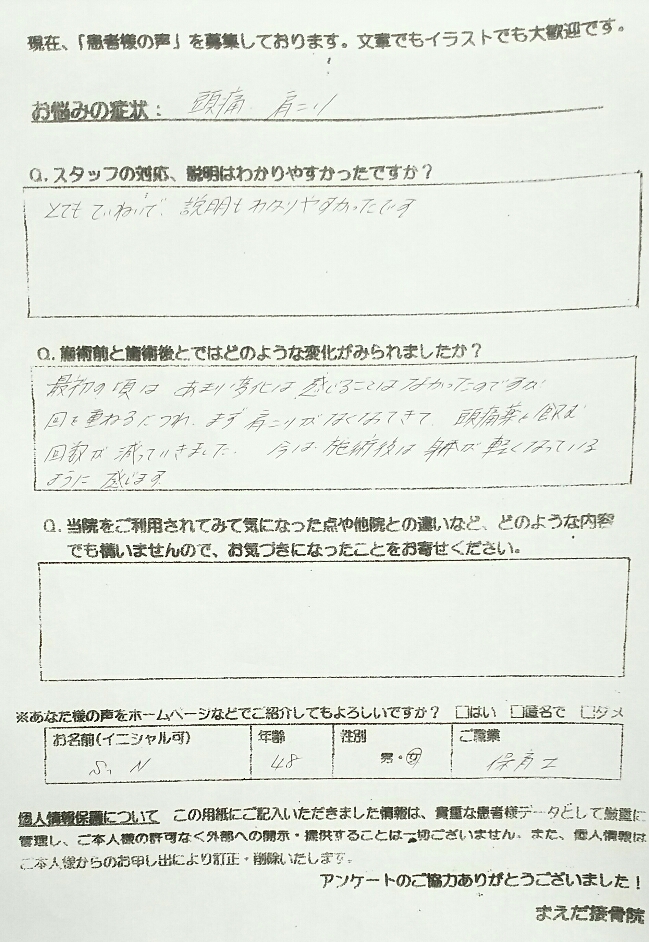 現在、「患者様の声」を募集しております。文章でもイラストでも大歓迎です。
お悩みの症状： 頭痛 肩こり
Q. スタッフの対応、説明はわかりやすかったですか？
とてもていねいで、説明もわかりやすかったです
Q. 施術前と施術後とではどのような変化がみられましたか？
最初の頃は あまり変化は感じることはなかったのですが
回を重ねるにつれ、まず肩こりがなくなってきて、頭痛薬を飲む
回数が減っていきました。 今は施術後は身体が軽くなっている
ように感じます
Q. 当院をご利用されてみて気になった点や他院との違いなど、どのような内容
でも構いませんので、お気づきになったことをお寄せください。
※あなた様の声をホームページなどでご紹介してもよろしいですか？ □はい □匿名で □ダメ
お名前(イニシャル可) 年齢 性別 ご職業
S. N 48 男・女 保育士
個人情報保護について この用紙にご記入いただきました情報は、貴重な患者様データとして厳重に
管理し、ご本人様の許可なく外部への開示・提供することは一切ございません。また、個人情報は
ご本人様からのお申し出により訂正・削除いたします。
アンケートのご協力ありがとうございました！
まえだ接骨院